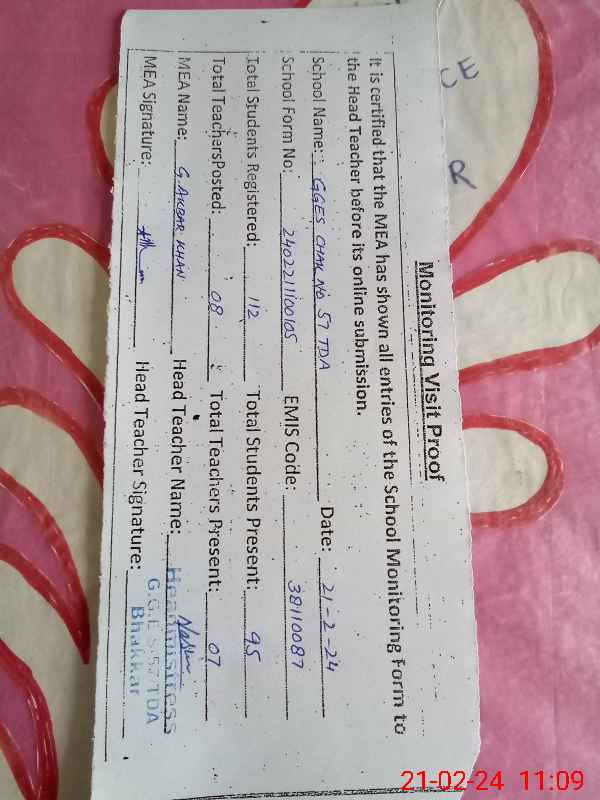 Monitoring Visit Proof
It is certified that the MEA has shown all entries of the School Monitoring Form to
the Head Teacher before its online submission.
School Name: GGES CHAK NO 57 TDA Date: 21-2-24
School Form No: 240221100105 EMIS Code: 38110087
Total Students Registered: 112 Total Students Present: 95
Total TeachersPosted: 08 Total Teachers Present: 07
MEA Name: G. AKBAR KHAN Head Teacher Name:
MEA Signature: Head Teacher Signature:
Headmistress
G.G.E.S 57 TDA
Bhakkar
CE
R
21-02-24 11:09